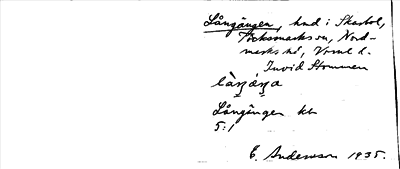 Långängen, hmd i Skarbol,
Töcksmarks sn, Nord-
marks hd, Vrml l.
Invid Strommen
låŋäŋa
Långängen kb
5:1
E. Andersson 1935.